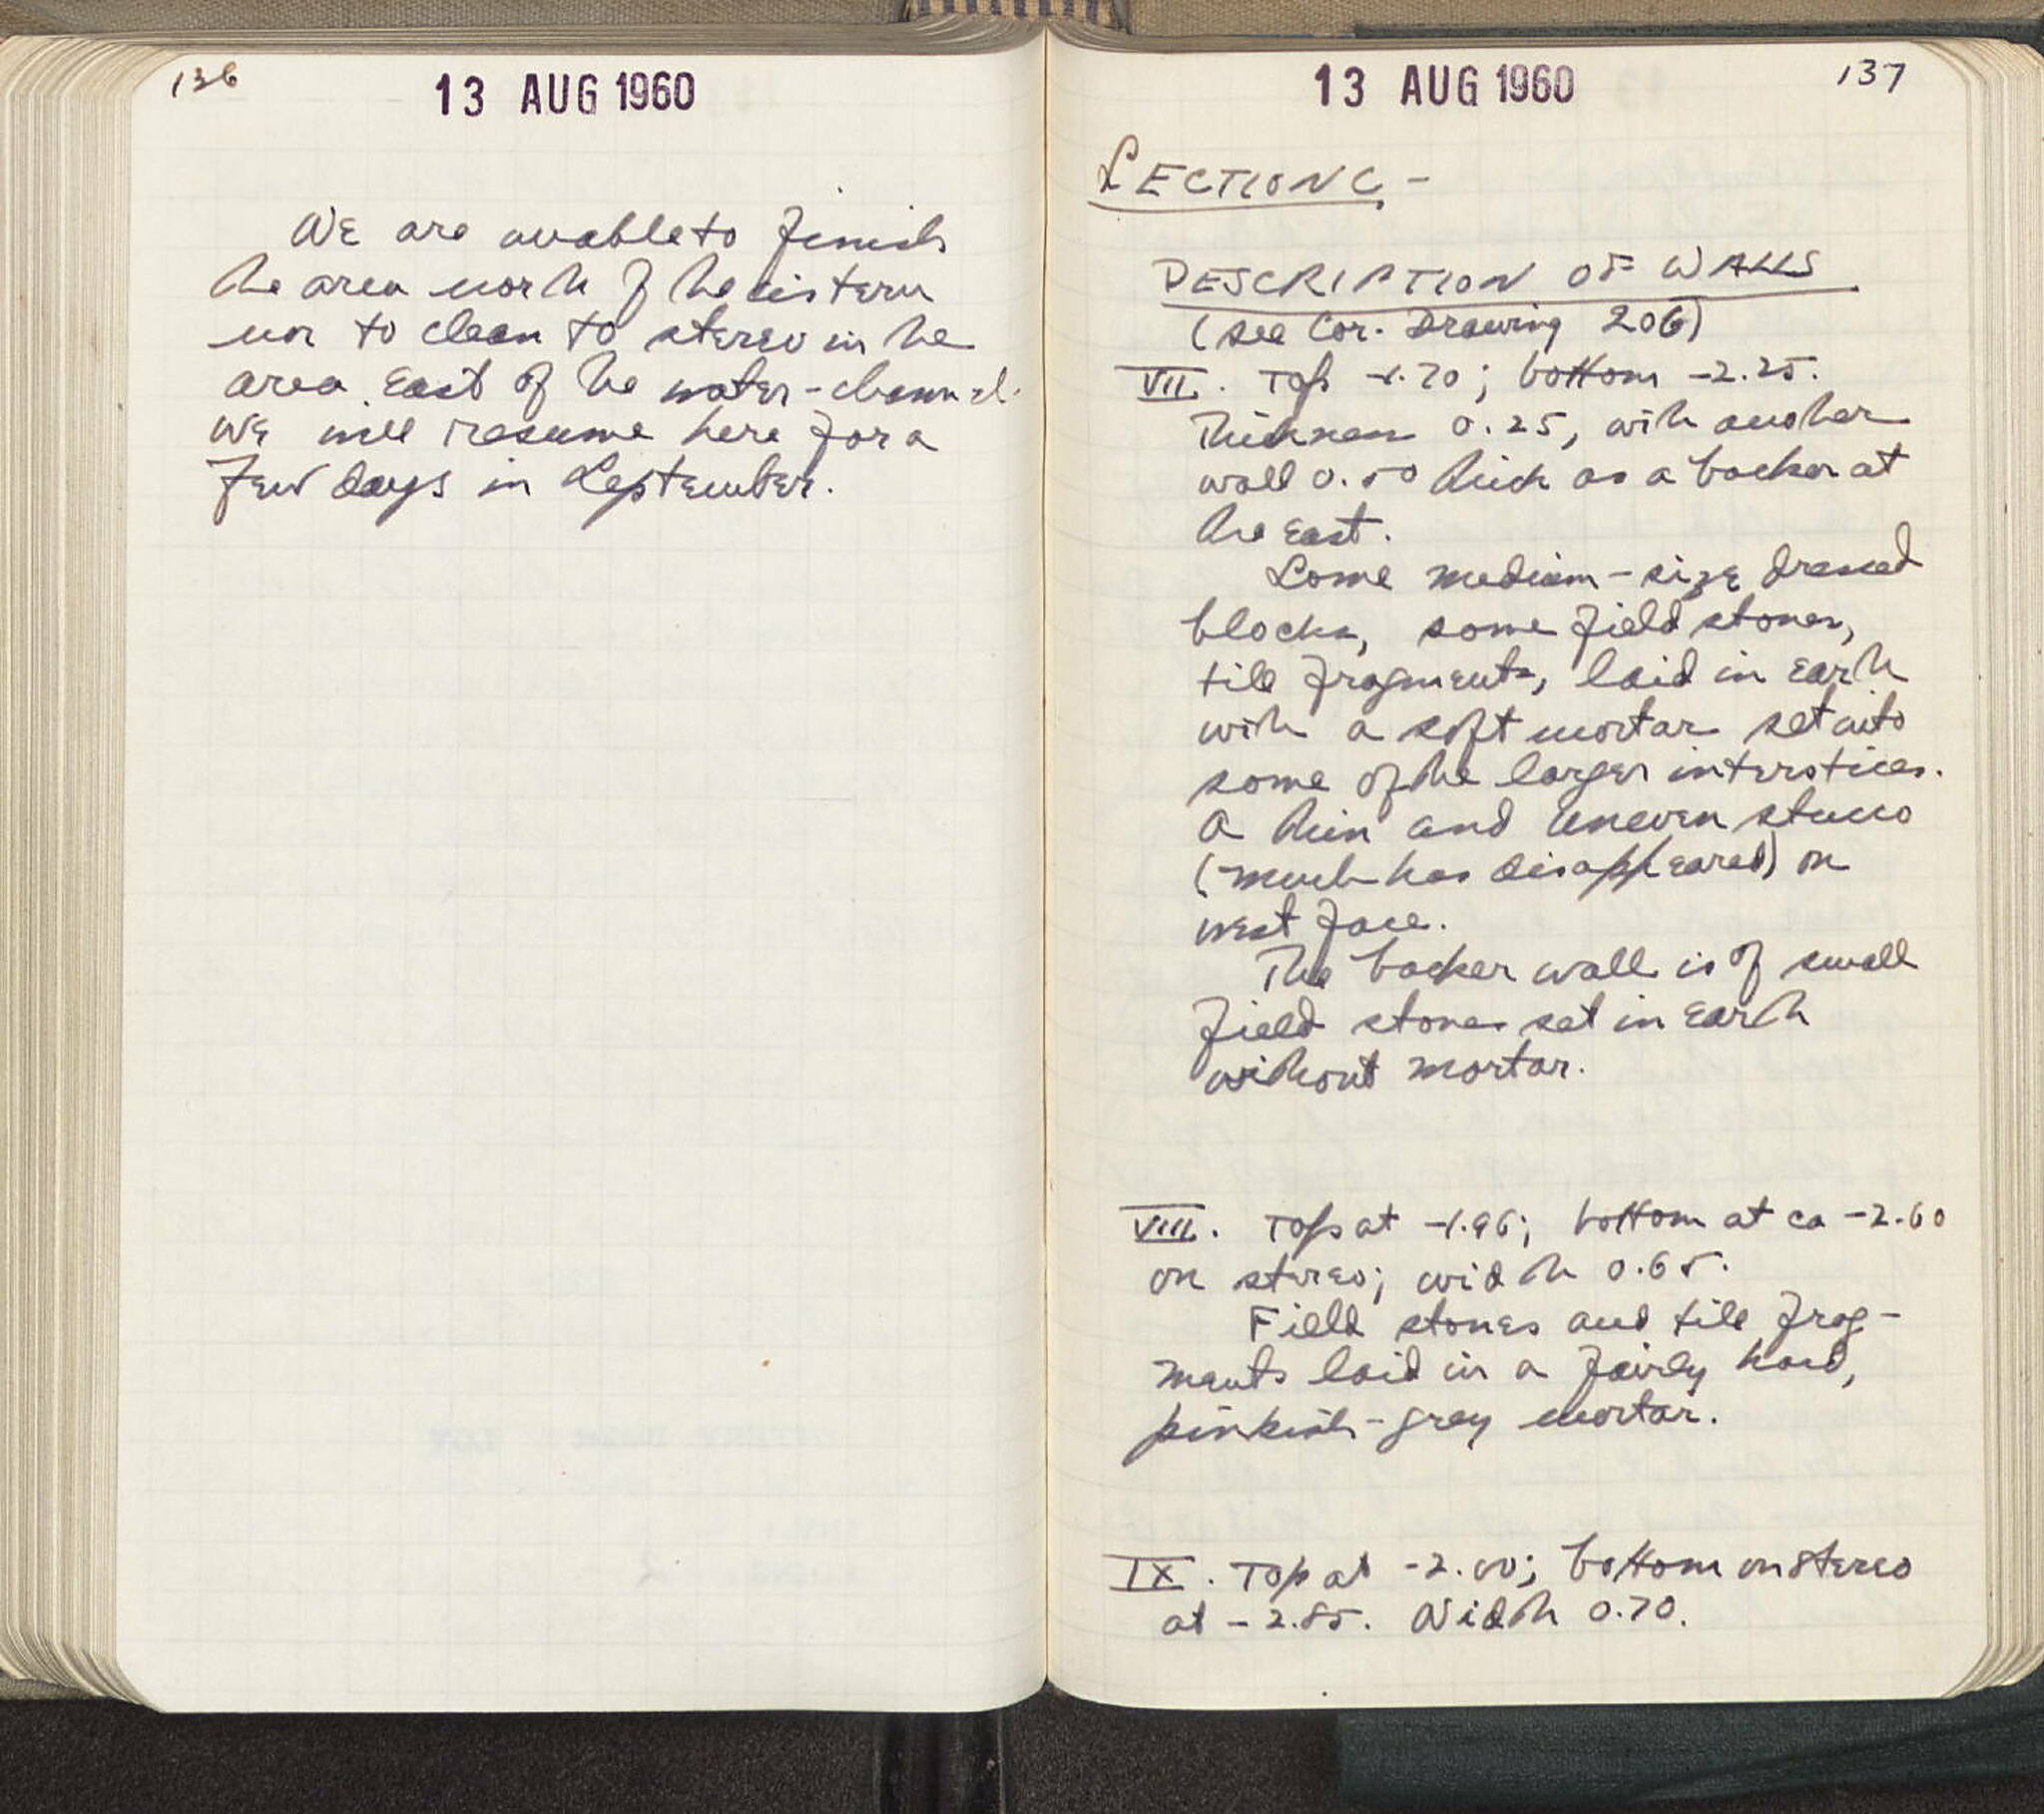 136
13 AUG 1960
We are unable to finish
the area north of the cistern
nor to clean to stereo in the
area East of the water-channel.
We will resume here for a
few days in September.
13 AUG 1960
137
SECTION C -
DESCRIPTION OF WALLS
(see Cor. Drawing 206)
VII. Top -1.70; bottom -2.25.
Thickness 0.25, with another
wall 0.50 thick as a backer at
the East.
Some medium-size dressed
blocks, some field stones,
tile fragments, laid in Earth
with a soft mortar set into
some of the larger interstices.
A thin and uneven stucco
(much has disappeared) on
west face.
The backer wall is of small
field stones set in Earth
without mortar.
VIII. Top at -1.96; bottom at ca -2.60
on stereo; width 0.65.
Field stones and tile frag-
ments laid in a fairly hard,
pinkish-grey mortar.
IX. Top at -2.00; bottom on stereo
at -2.85. Width 0.70.